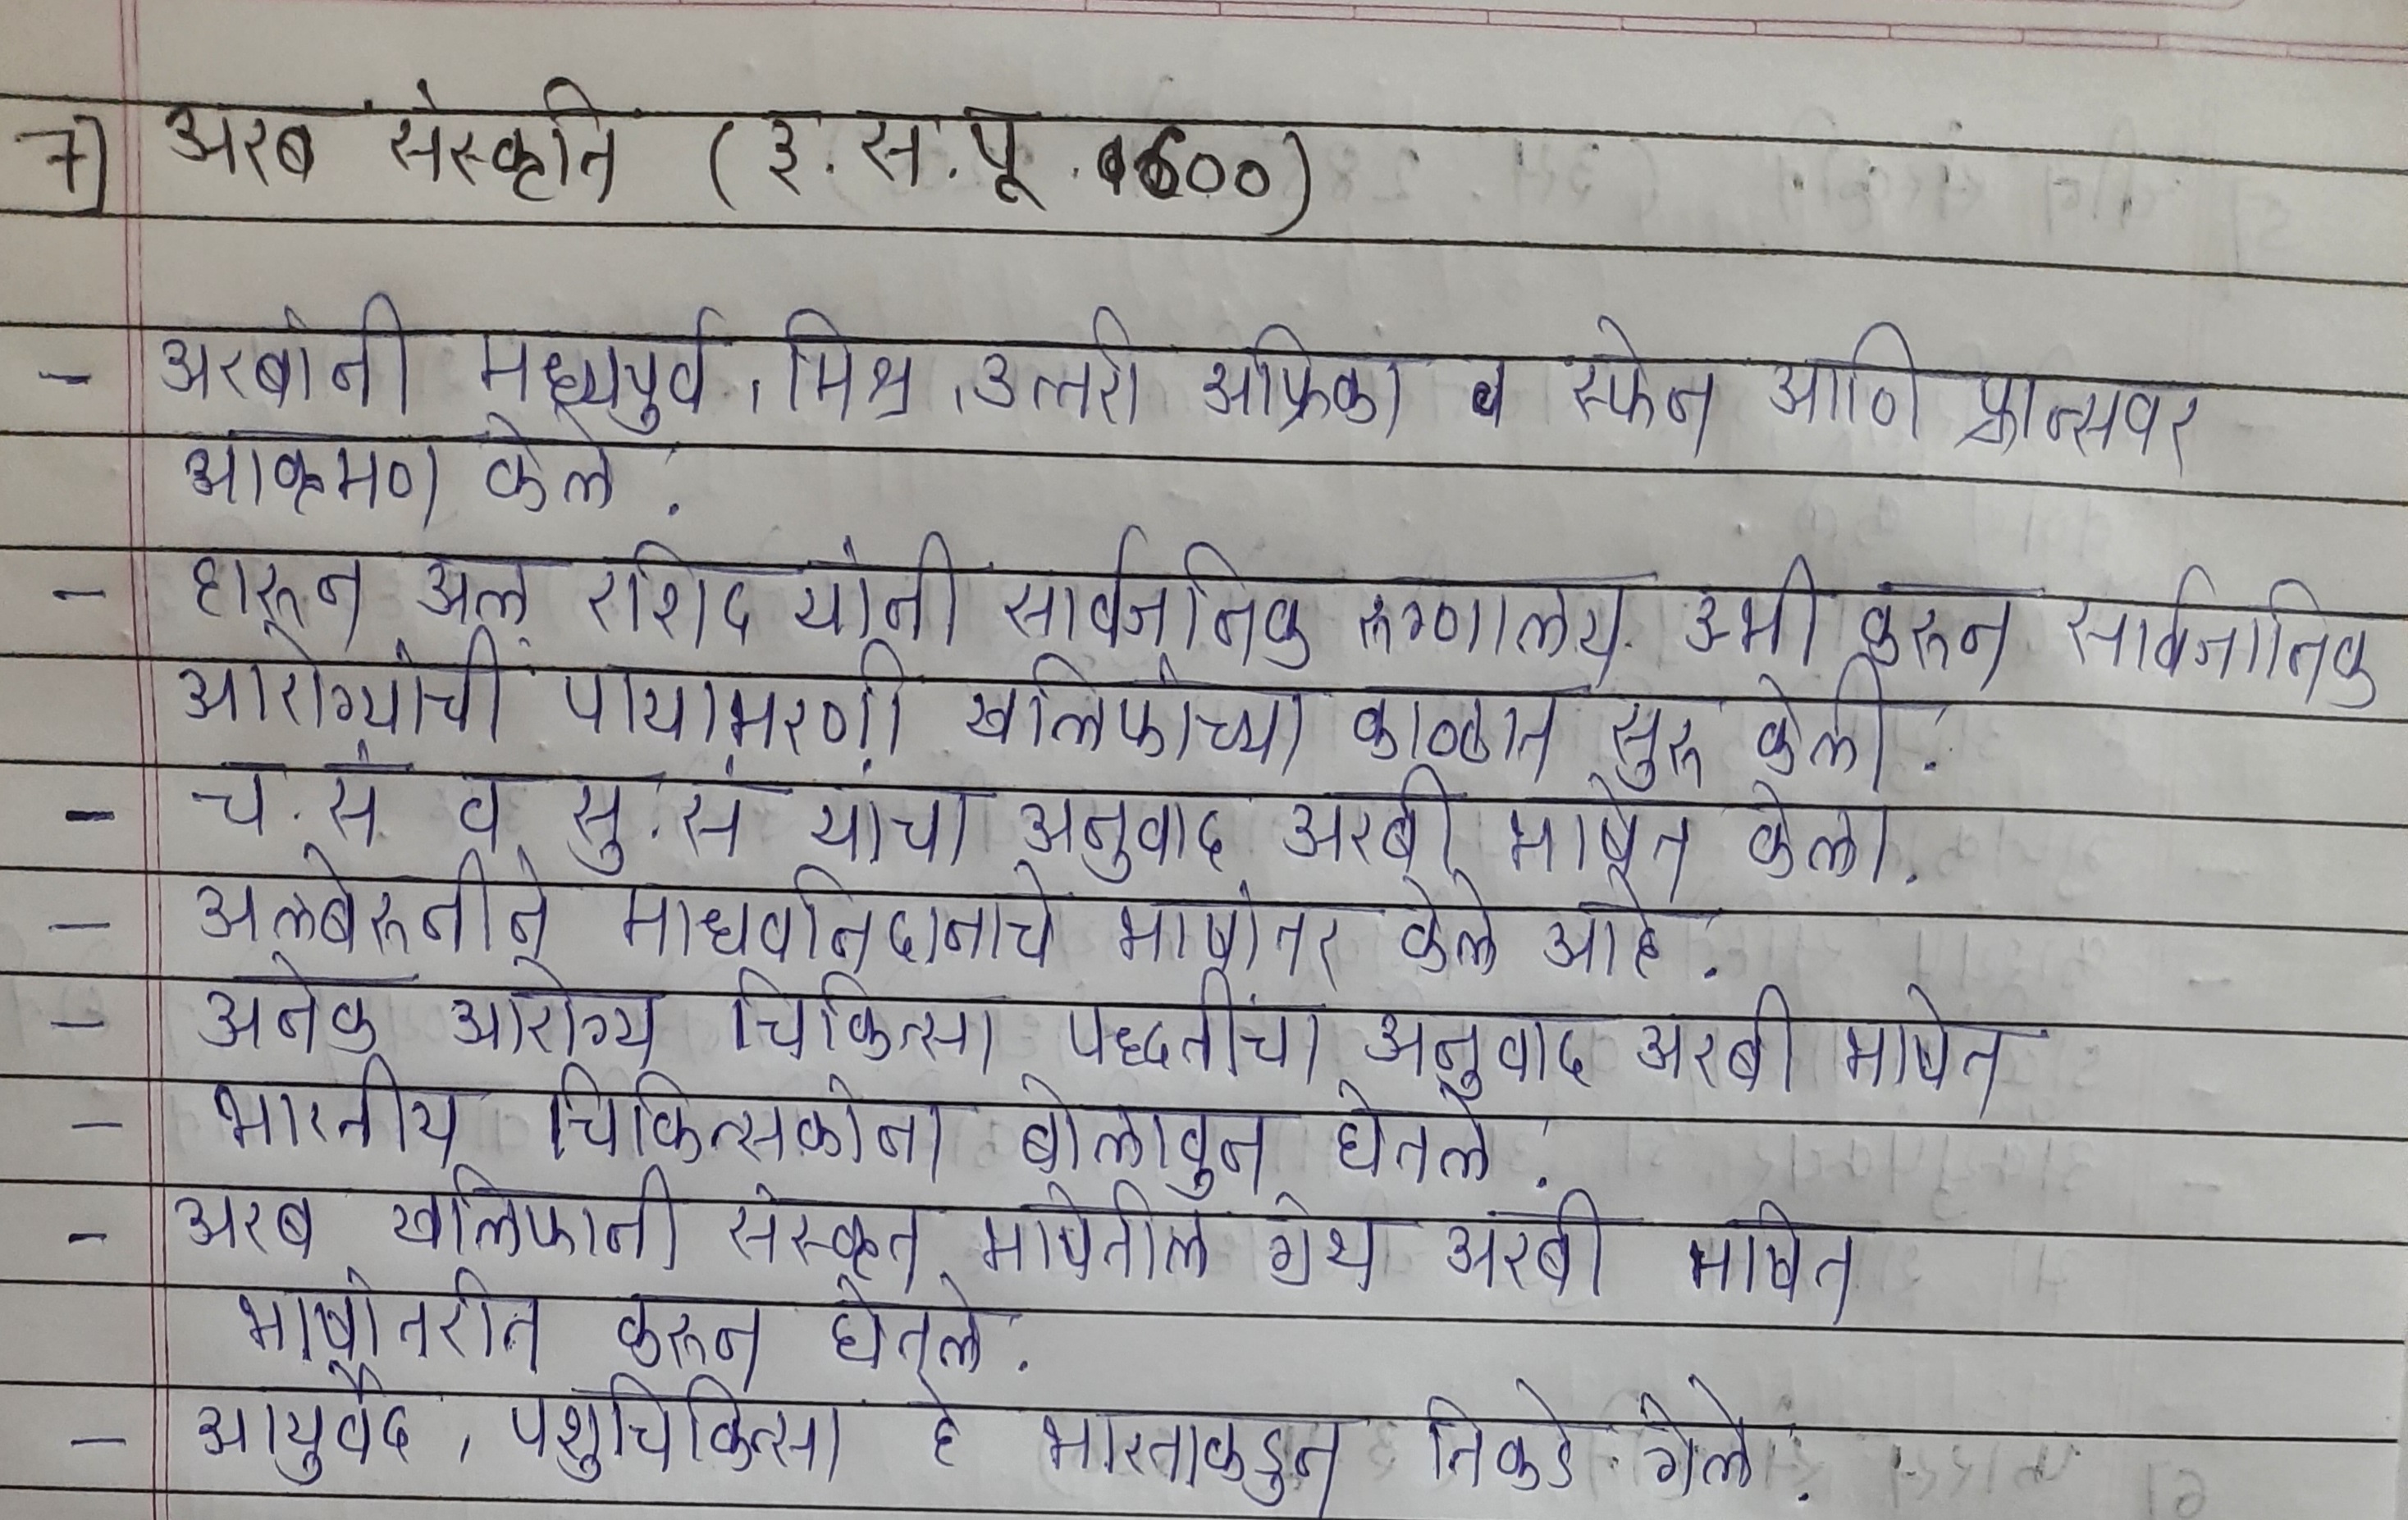 7] अरब संस्कृति (इ.स.पू. 600)
- अरबांनी मध्यपुर्व, मिश्र, उत्तरी आफ्रिका व स्फेन आणि फ्रान्सवर
आक्रमण केले.
- हारून अल् रशिद यांनी सार्वजनिक रूग्णालय उभी करून सार्वजानिक
आरोग्यांची पायाभरणी खलिफांच्या काळात सुरू केली.
- च.सं व सु.सं यांचा अनुवाद अरबी भाषेत केला.
- अलबेरूनीने माधवनिदानाचे भाषांतर केले आहे.
- अनेक आरोग्य चिकित्सा पद्धतींचा अनुवाद अरबी भाषेत
- भारतीय चिकित्सकांना बोलावुन घेतले.
- अरब खलिफानी संस्कृत भाषेतील ग्रंथ अरबी भाषेत
भाषांतरीत करून घेतले.
- आयुर्वेद, पशुचिकित्सा हे भारताकडुन तिकडे गेले.